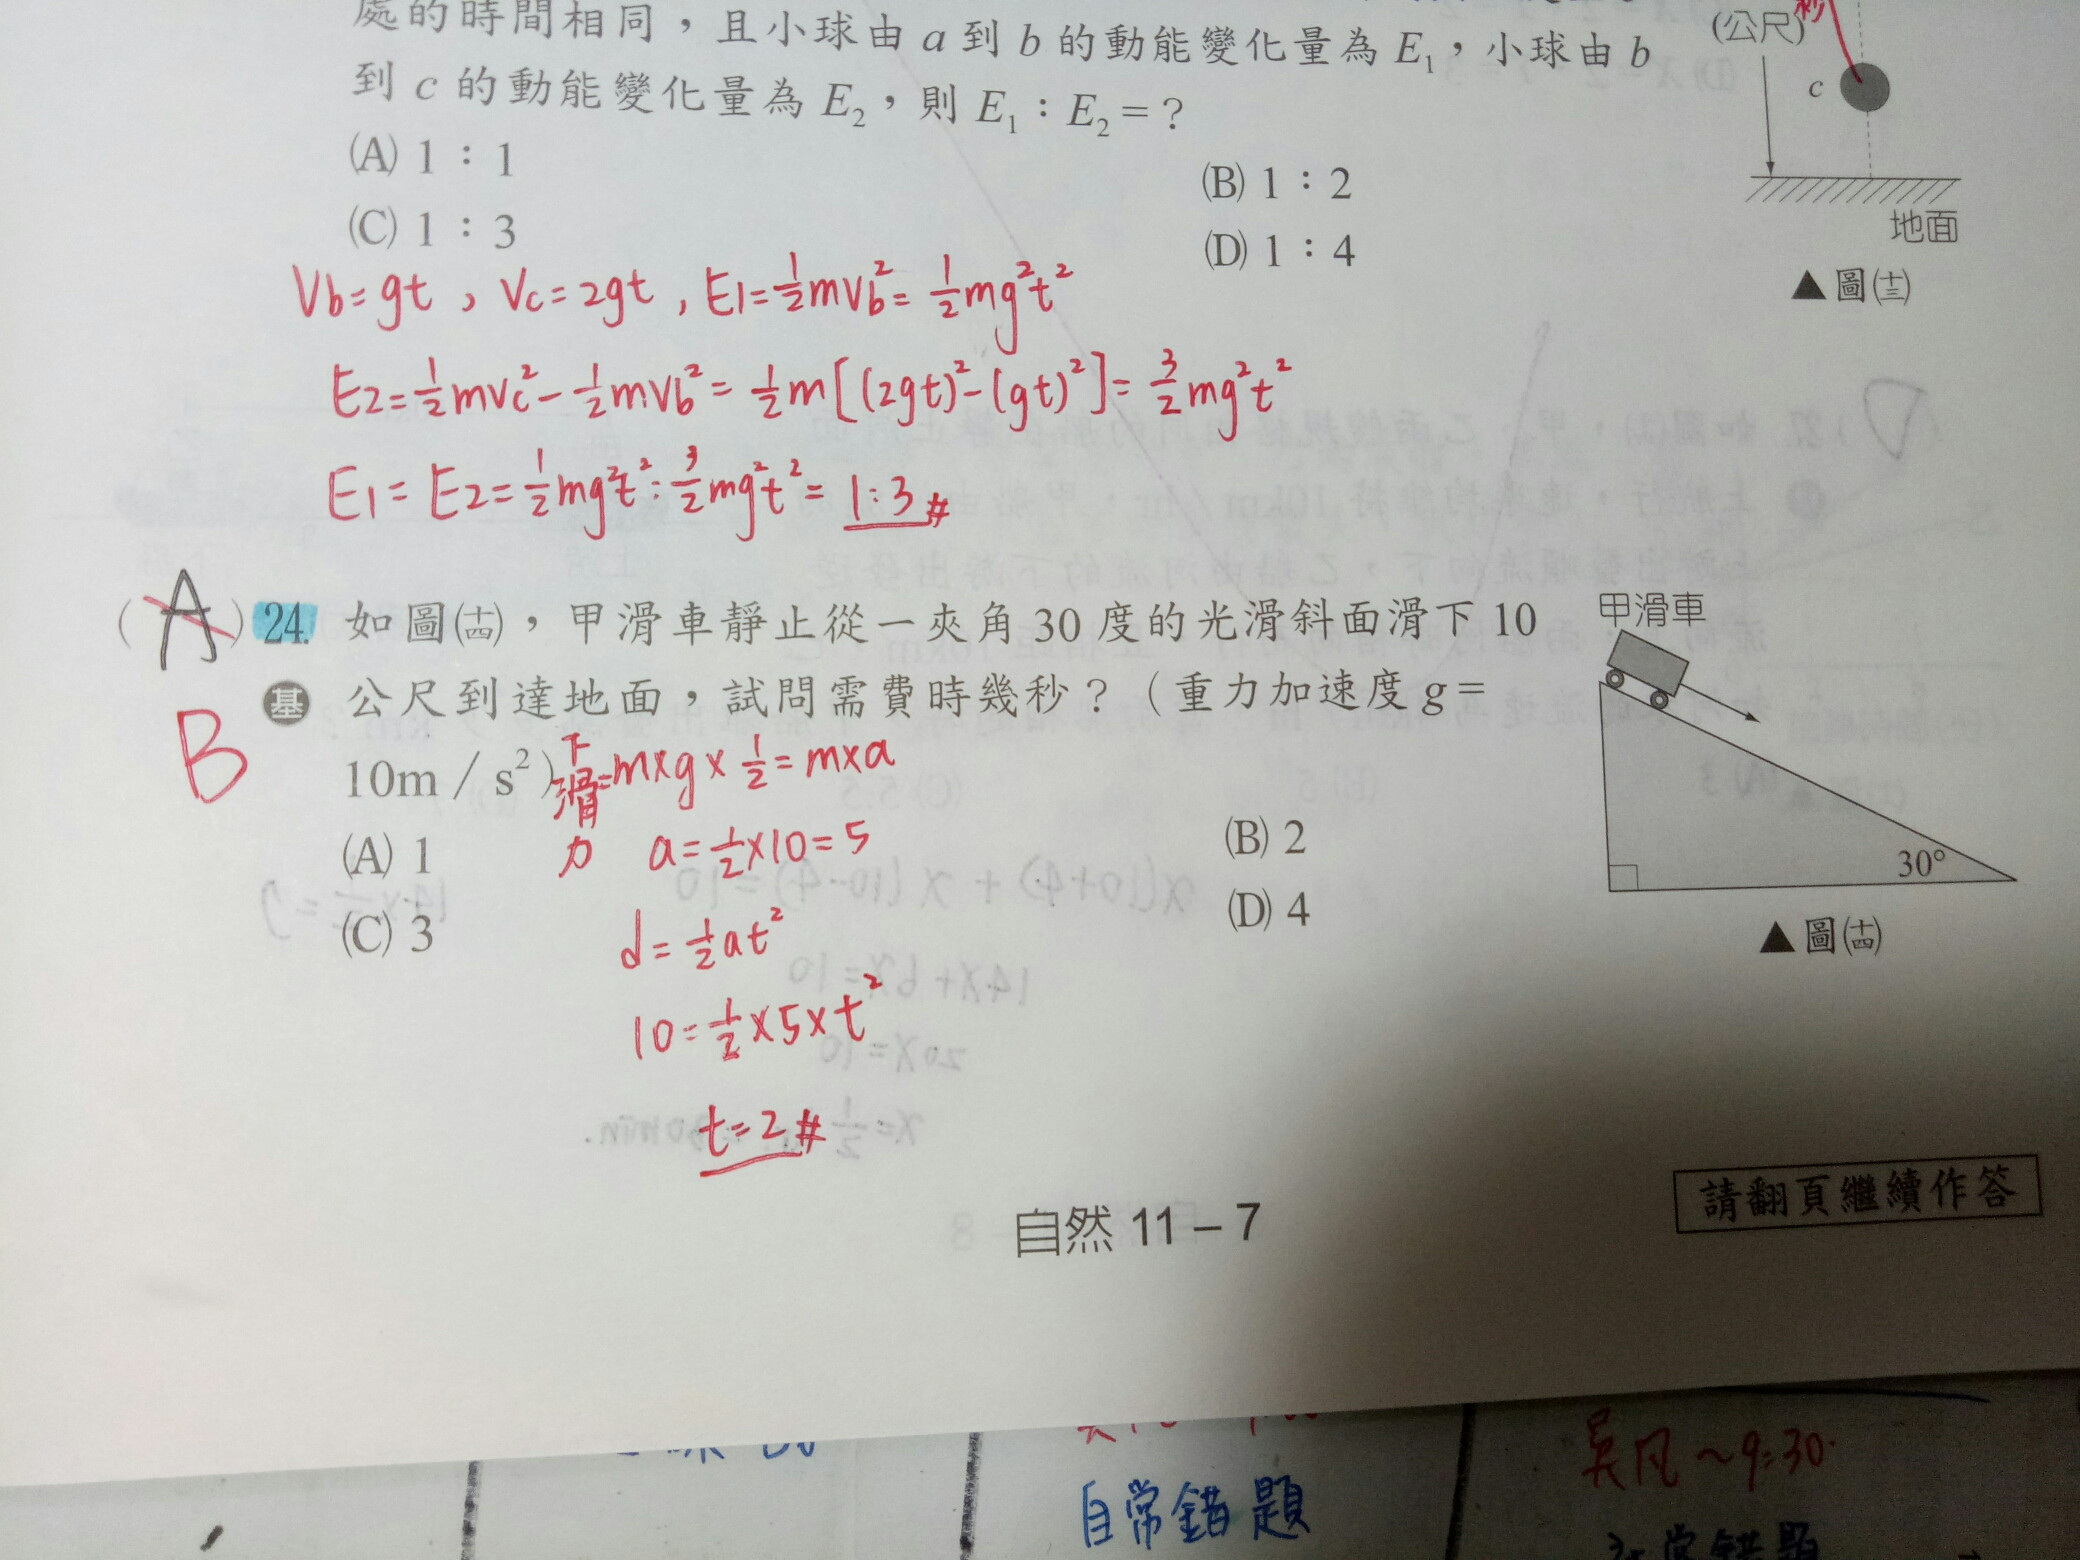 處的時間相同，且小球由 a 到 b 的動能變化量為 E₁，小球由 b
到 c 的動能變化量為 E₂，則 E₁：E₂＝？
(A) 1：1
(B) 1：2
(C) 1：3
(D) 1：4
(公尺)
秒
c
地面
▲圖(十三)
Vb=gt , Vc=2gt , E1=½mVb²=½mg²t²
E2=½mVc²-½mVb²=½m[(2gt)²-(gt)²]=3/2mg²t²
E1=E2=½mg²t²:3/2mg²t²=1:3#
(A) 24. 如圖(十四)，甲滑車靜止從一夾角 30 度的光滑斜面滑下 10
B
基 公尺到達地面，試問需費時幾秒？（重力加速度 g＝
10m／s²）
下滑力=m×g×½=m×a
(A) 1
(B) 2
(C) 3
(D) 4
a=½×10=5
d=½at²
10=½×5×t²
t=2#
甲滑車
30°
▲圖(十四)
請翻頁繼續作答
自然 11－7
吳凡~9:30
自常錯題